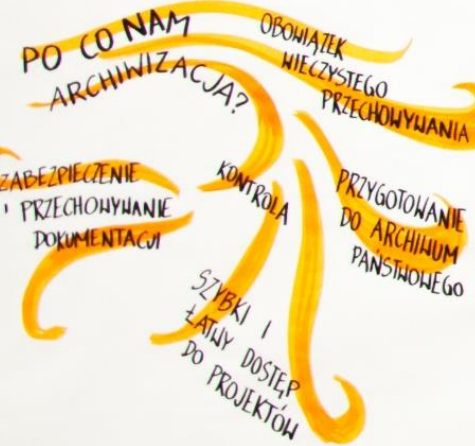 PO CO NAM
ARCHIWIZACJA?
OBOWIĄZEK
WIECZYSTEGO
PRZECHOWYWANIA
ZABEZPIECZENIE
I PRZECHOWYWANIE
DOKUMENTACJI
KONTROLA
PRZYGOTOWANIE
DO ARCHIWUM
PAŃSTWOWEGO
SZYBKI I
ŁATWY DOSTĘP
DO PROJEKTÓW